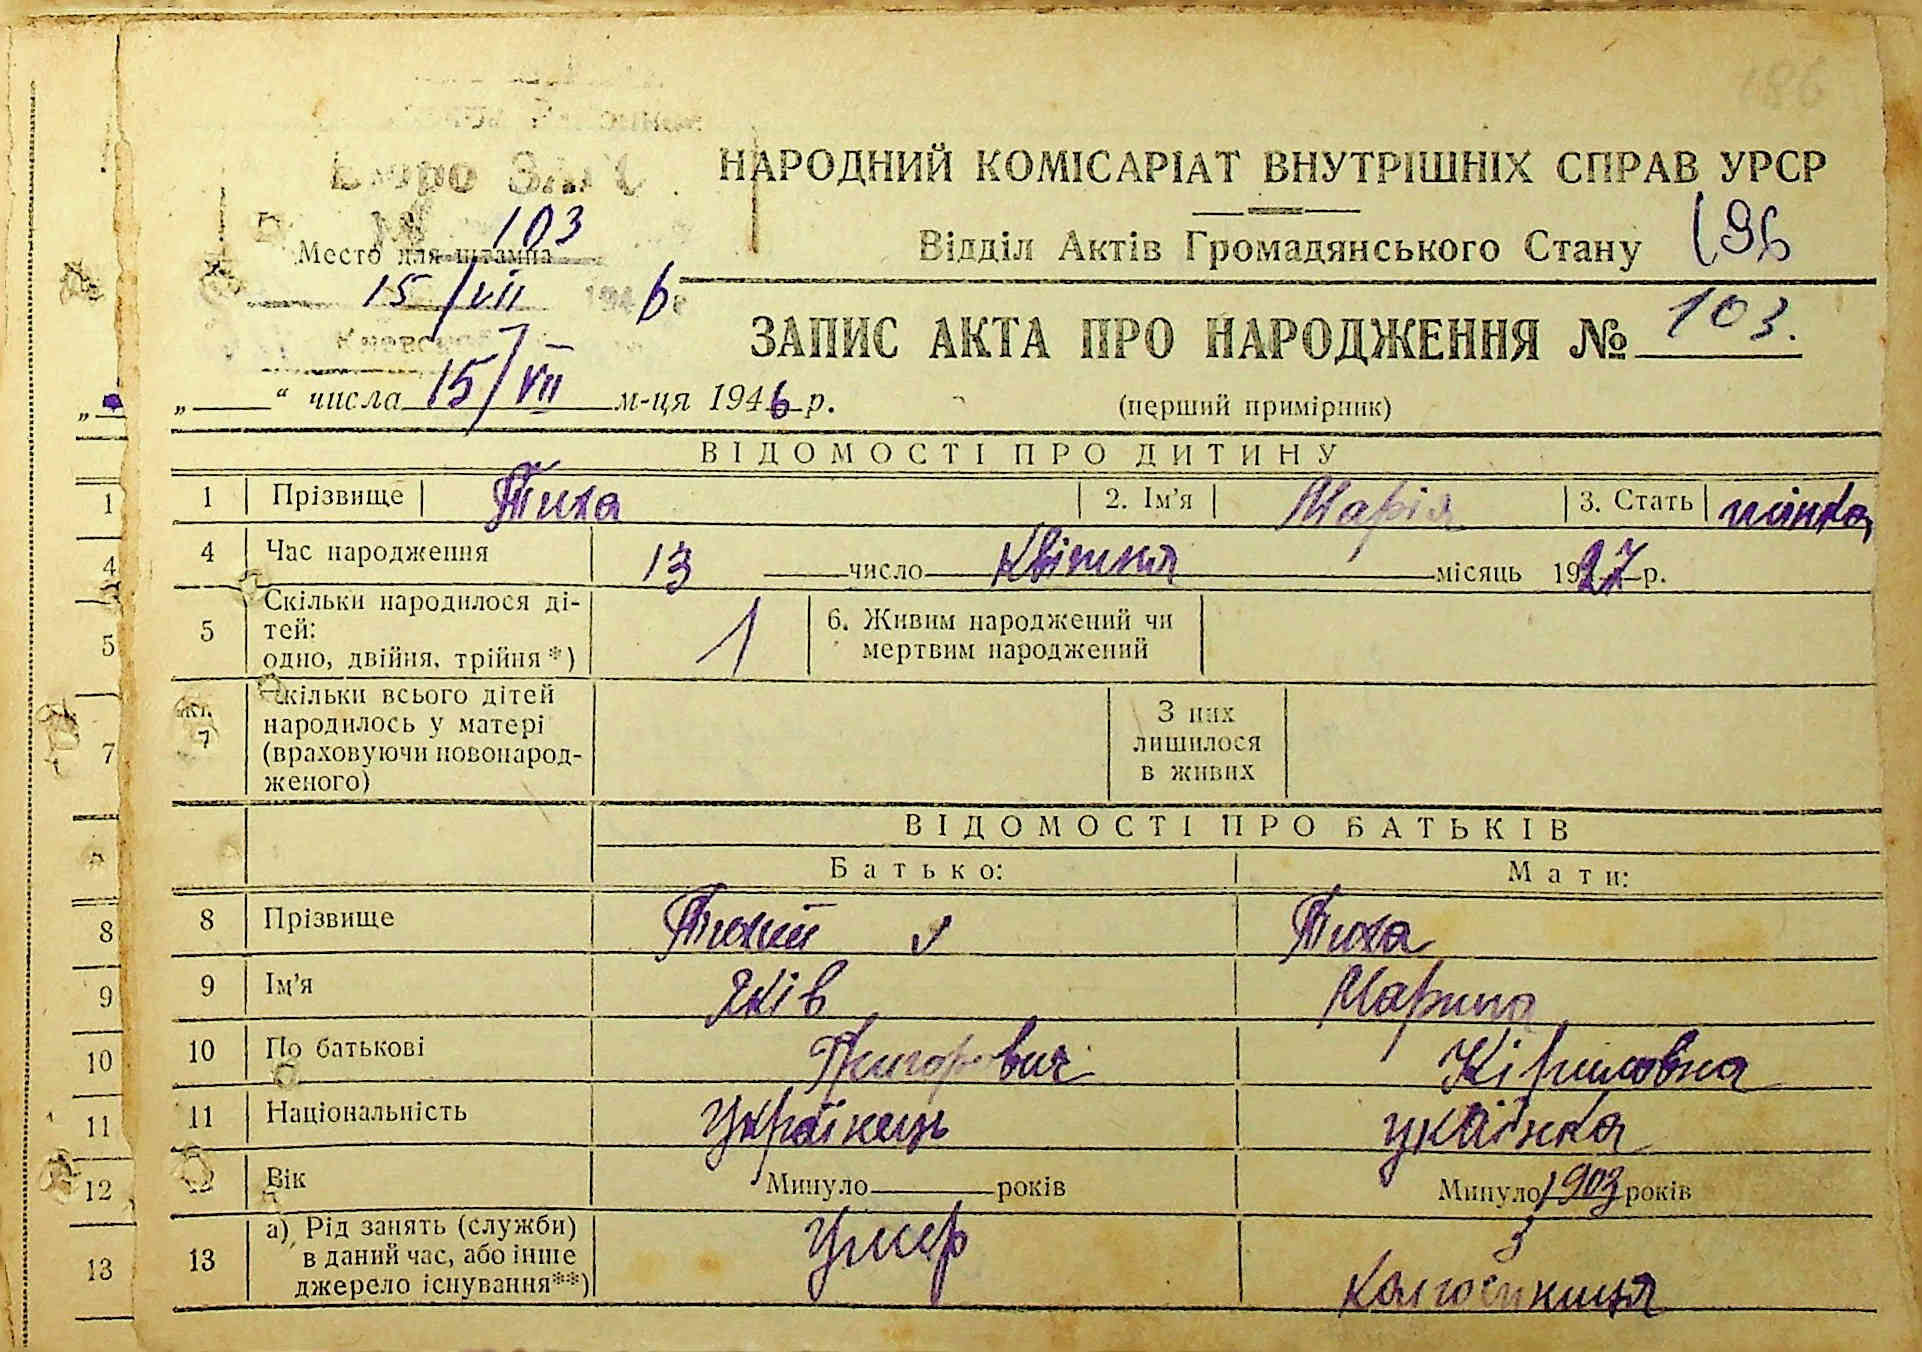 186
НАРОДНИЙ КОМІСАРІАТ ВНУТРІШНІХ СПРАВ УРСР
Відділ Актів Громадянського Стану 196
103
Место для штампа
15/VII 6
ЗАПИС АКТА ПРО НАРОДЖЕННЯ № 103.
„ “ числа 15/VII м-ця 1946 р. (перший примірник)
ВІДОМОСТІ ПРО ДИТИНУ
1 1 Прізвище Тиха 2. Ім’я Марія 3. Стать жінка
4 4 Час народження 13 число Квітня місяць 1927 р.
5 5 Скільки народилося ді-
тей:
одно, двійня, трійня *) 1 6. Живим народжений чи
мертвим народжений
7 7 Скільки всього дітей
народилось у матері
(враховуючи новонарод-
женого) З них
лишилося
в живих
ВІДОМОСТІ ПРО БАТЬКІВ
Батько: Мати:
8 8 Прізвище Тихий Тиха
9 9 Ім’я Яків Марина
10 10 По батькові Григорович Кіриловна
11 11 Національність Українець
12 12 Вік Минуло років Минуло 1903 років
13 13 а) Рід занять (служби)
в даний час, або інше
джерело існування**) Умер Колгоспниця